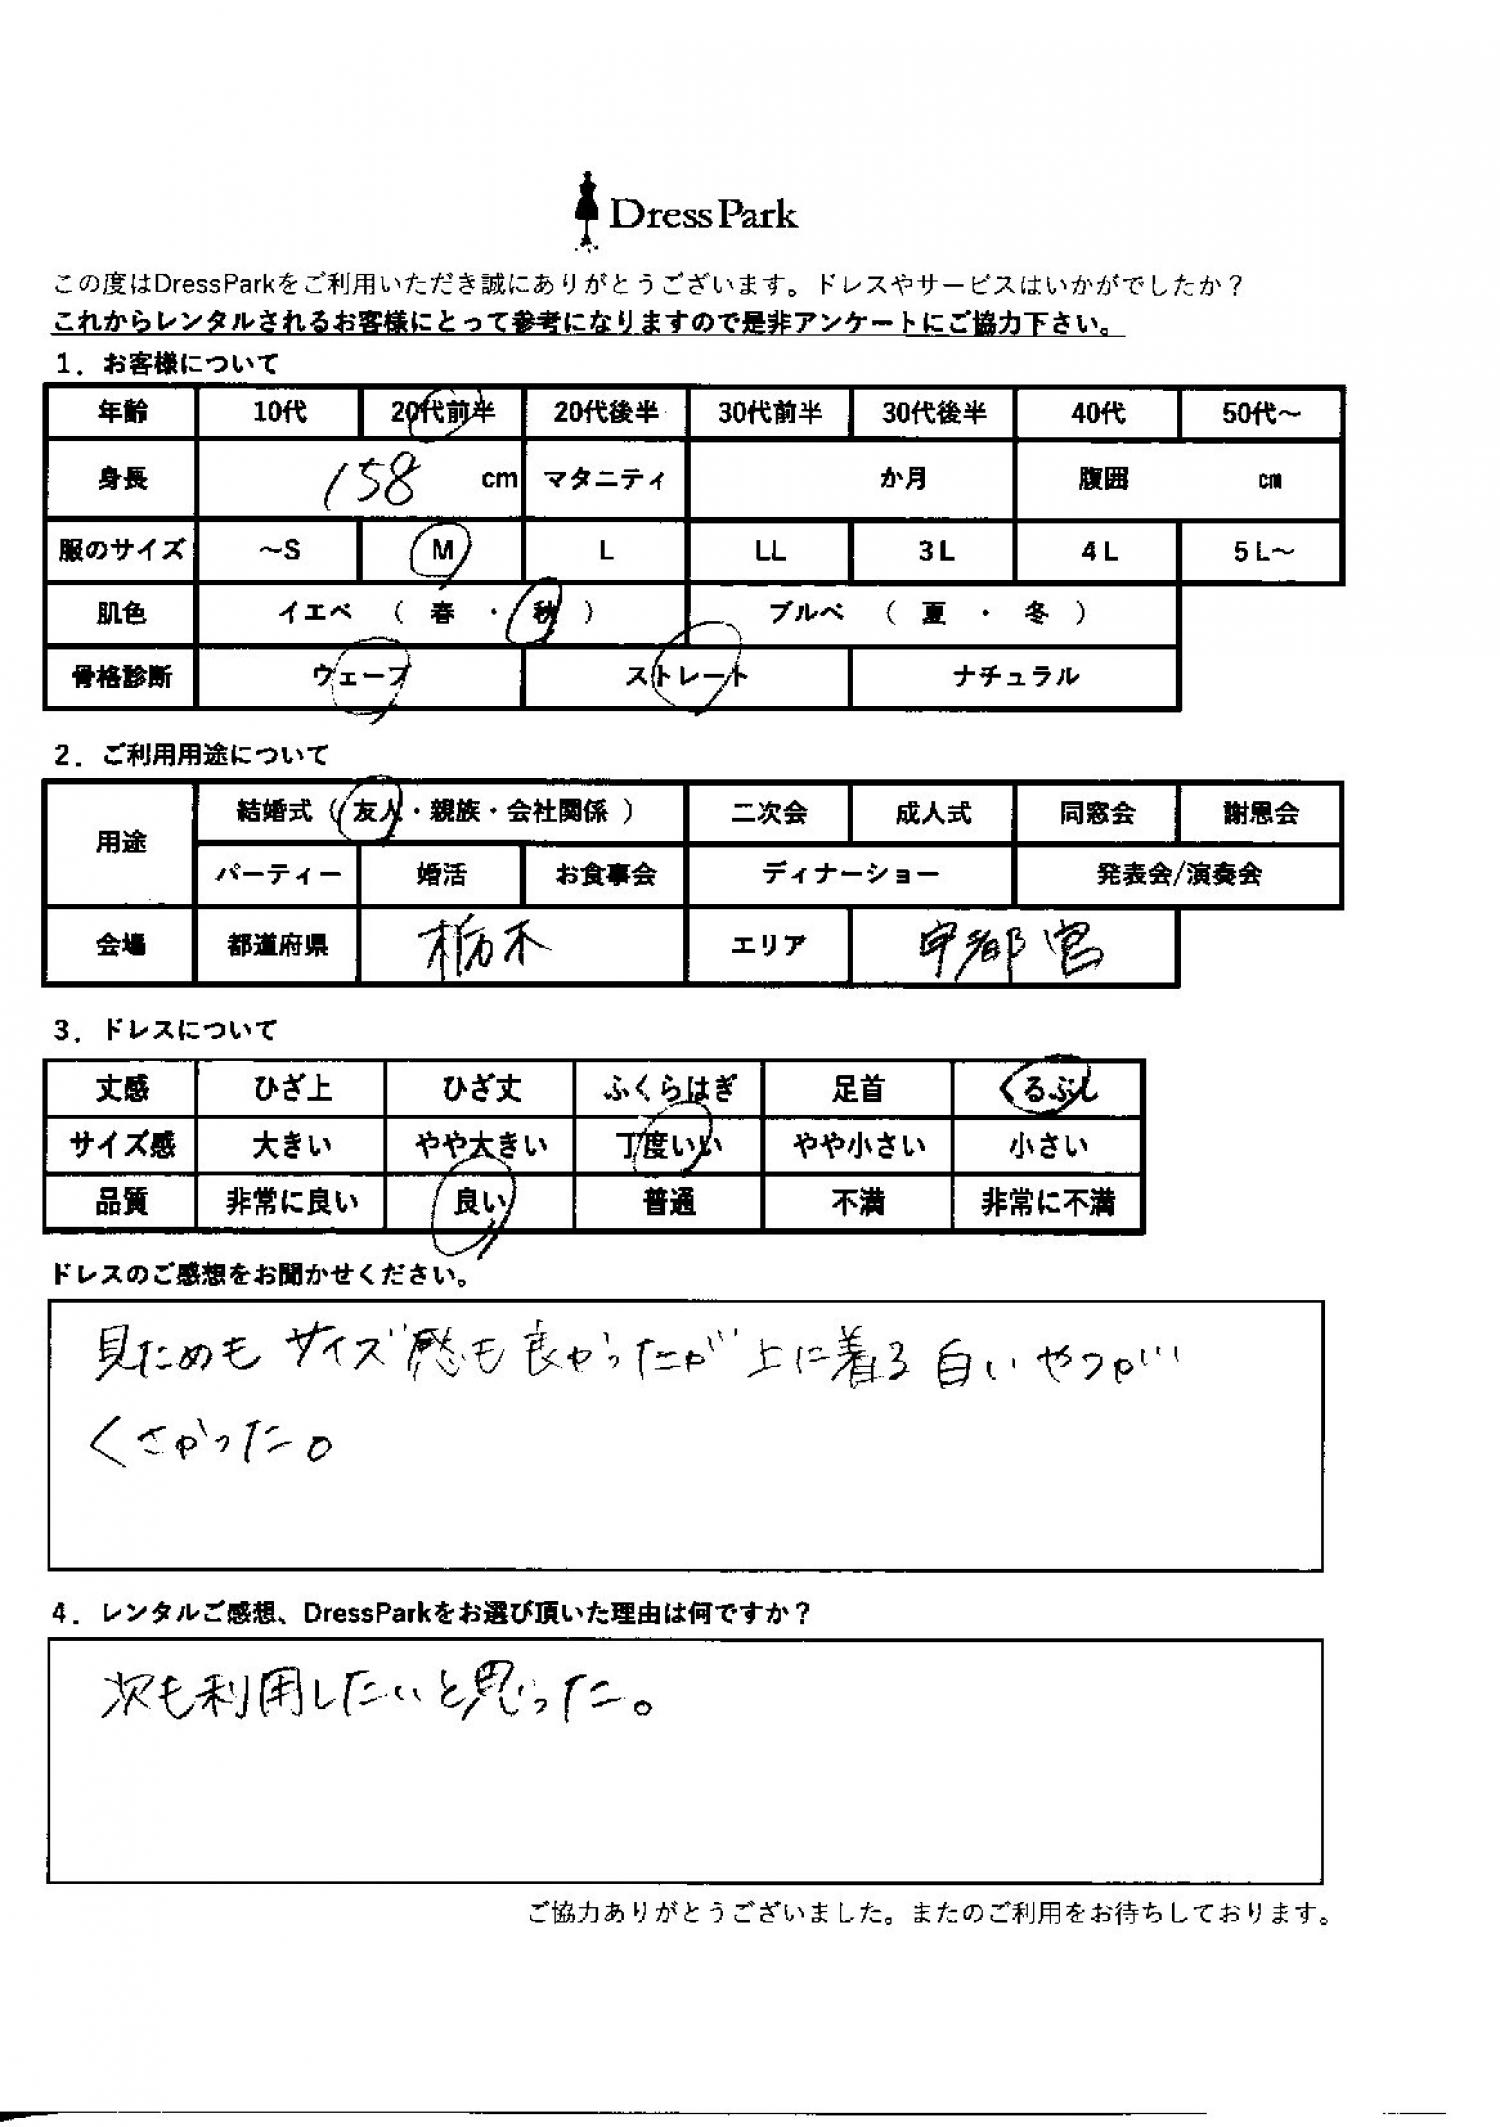 DressPark
この度はDressParkをご利用いただき誠にありがとうございます。ドレスやサービスはいかがでしたか？
これからレンタルされるお客様にとって参考になりますので是非アンケートにご協力下さい。
1．お客様について
年齢 10代 20代前半 20代後半 30代前半 30代後半 40代 50代～
身長 158 cm マタニティ か月 腹囲 cm
服のサイズ ～S M L LL 3L 4L 5L～
肌色 イエベ （ 春 ・ 秋 ） ブルベ （ 夏 ・ 冬 ）
骨格診断 ウェーブ ストレート ナチュラル
2．ご利用用途について
用途 結婚式（ 友人・親族・会社関係 ） 二次会 成人式 同窓会 謝恩会
パーティー 婚活 お食事会 ディナーショー 発表会/演奏会
会場 都道府県 栃木 エリア 宇都宮
3．ドレスについて
丈感 ひざ上 ひざ丈 ふくらはぎ 足首 くるぶし
サイズ感 大きい やや大きい 丁度いい やや小さい 小さい
品質 非常に良い 良い 普通 不満 非常に不満
ドレスのご感想をお聞かせください。
見ためも サイズ感も良かったが 上に着る 白いやつが
くさかった。
4．レンタルご感想、DressParkをお選び頂いた理由は何ですか？
次も利用したいと思った。
ご協力ありがとうございました。またのご利用をお待ちしております。